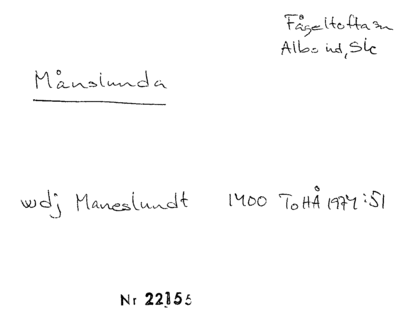 Fågeltofta sn
Albo hd, Sk
Månslunda
wdj Maneslundt 1400 ToHÅ 1974:51
Nr 22155